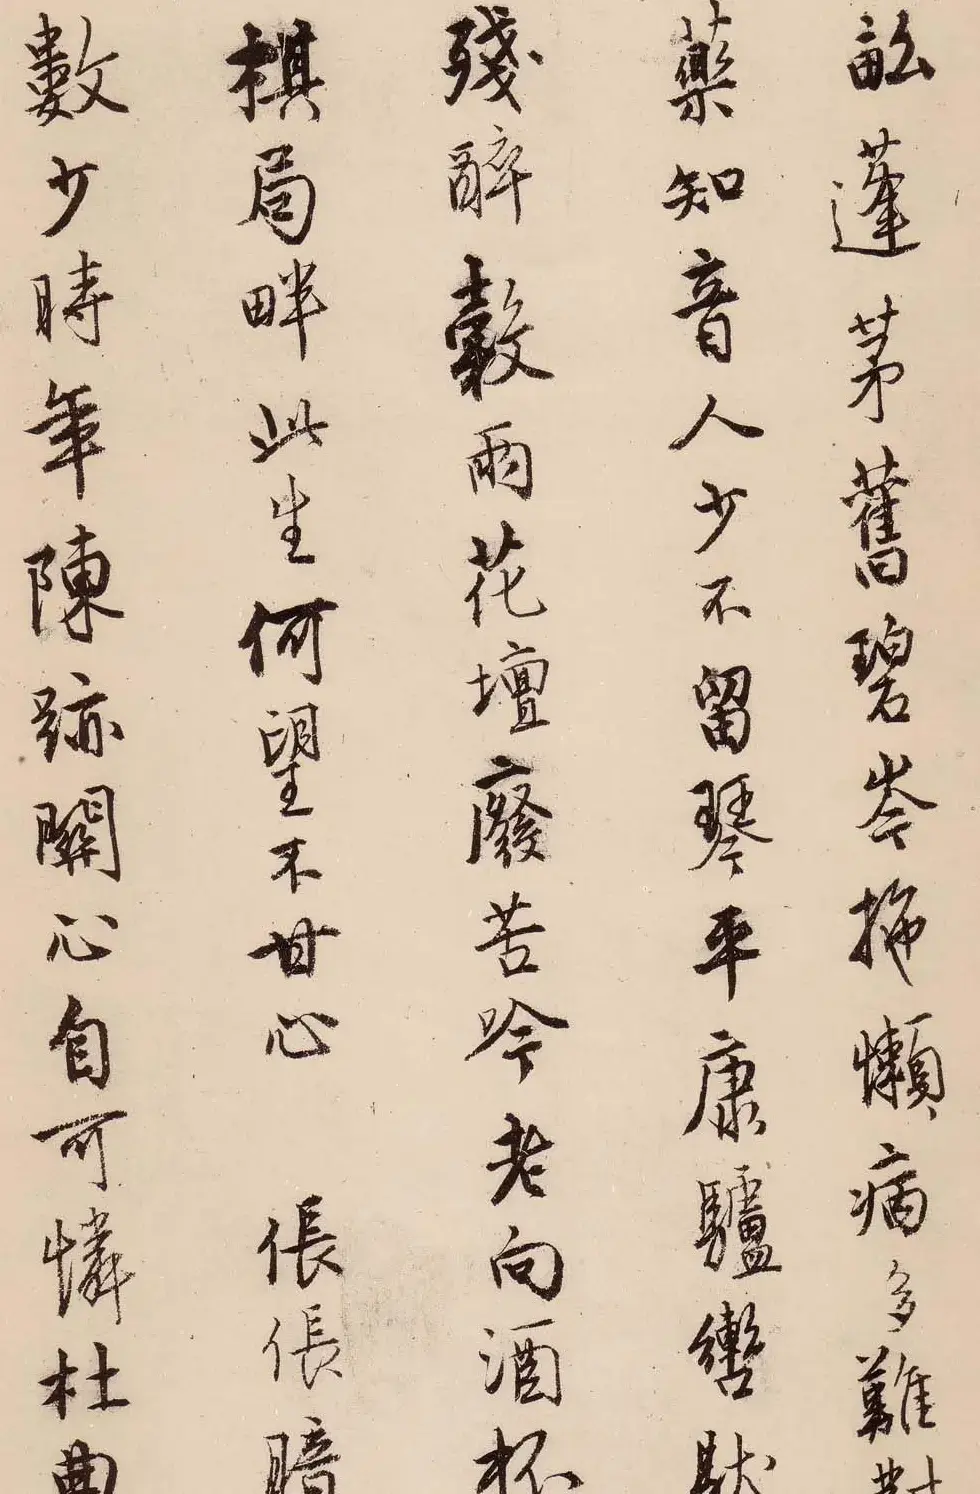 畝蓬茅舊碧岑拖懶病多難對
藥知音人少不留琴平康驢轡馱
殘醉穀雨花壇廢苦吟老向酒杯
棋局畔此生何望不甘心 倀倀暗
數少時年陳跡關心自可憐杜曲